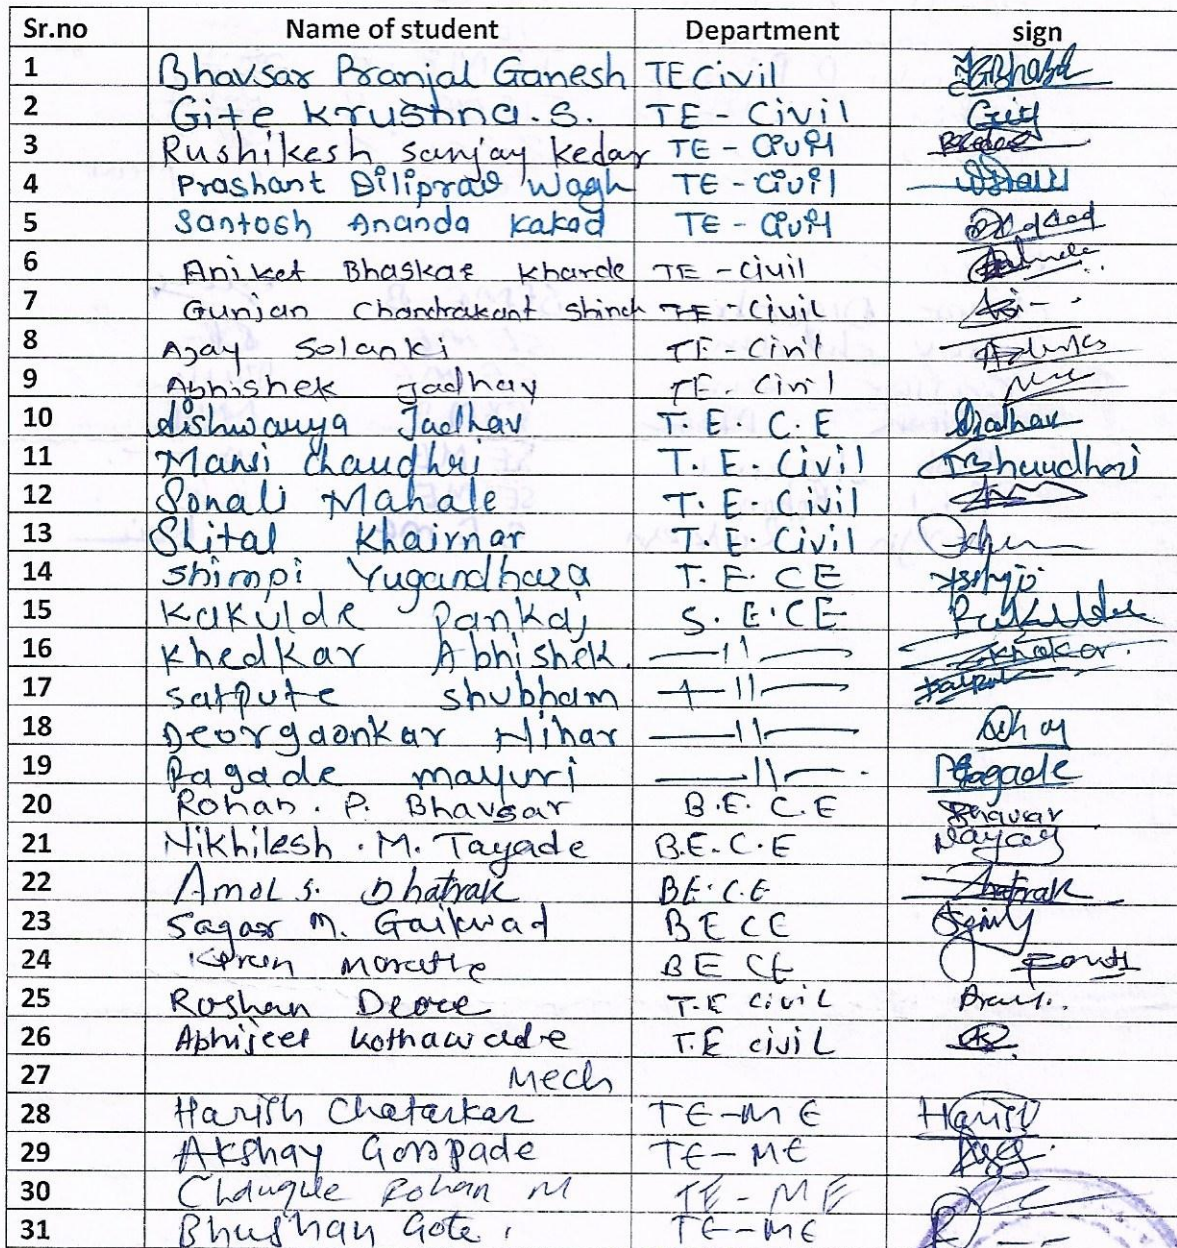 Sr.no Name of student Department sign
1 Bhavsar Pranjal Ganesh TE Civil
2 Gite Krushna.S. TE - Civil Gite
3 Rushikesh Sanjay Kedar TE - Civil
4 Prashant Diliprao Wagh TE - Civil
5 Santosh Ananda Kakad TE - Civil
6 Aniket Bhaskar Kharde TE - Civil
7 Gunjan Chandrakant Shinde TE - Civil
8 Ajay Solanki TE - Civil
9 Abhishek Jadhav TE - Civil
10 Aishwarya Jadhav T. E. C. E Jadhav
11 Mansi Chaudhri T. E. Civil
12 Sonali Mahale T. E. Civil
13 Shital Khairnar T. E. Civil
14 Shimpi Yugandhara T. E. CE
15 Kakulde Pankaj S. E. CE
16 Khedkar Abhishek. —11—
17 Satpute Shubham —11—
18 Deorgaonkar Nihar —11—
19 Pagade mayuri —11— Pagade
20 Rohan. P. Bhavsar B.E. C.E Bhavsar
21 Nikhilesh. M. Tayade B.E. C.E
22 Amol. S. Dhatrak BE. C.E Dhatrak
23 Sagar M. Gaikwad BE CE
24 Kiran Marathe BE CE
25 Roshan Deore T.E civil
26 Abhijeet Kothawade T.E civil
27 Mech
28 Harish Chatarkar TE-ME Harish
29 Akshay TE-ME
30 Chaugule Rohan M TE - ME
31 Bhushan Gote TE-ME